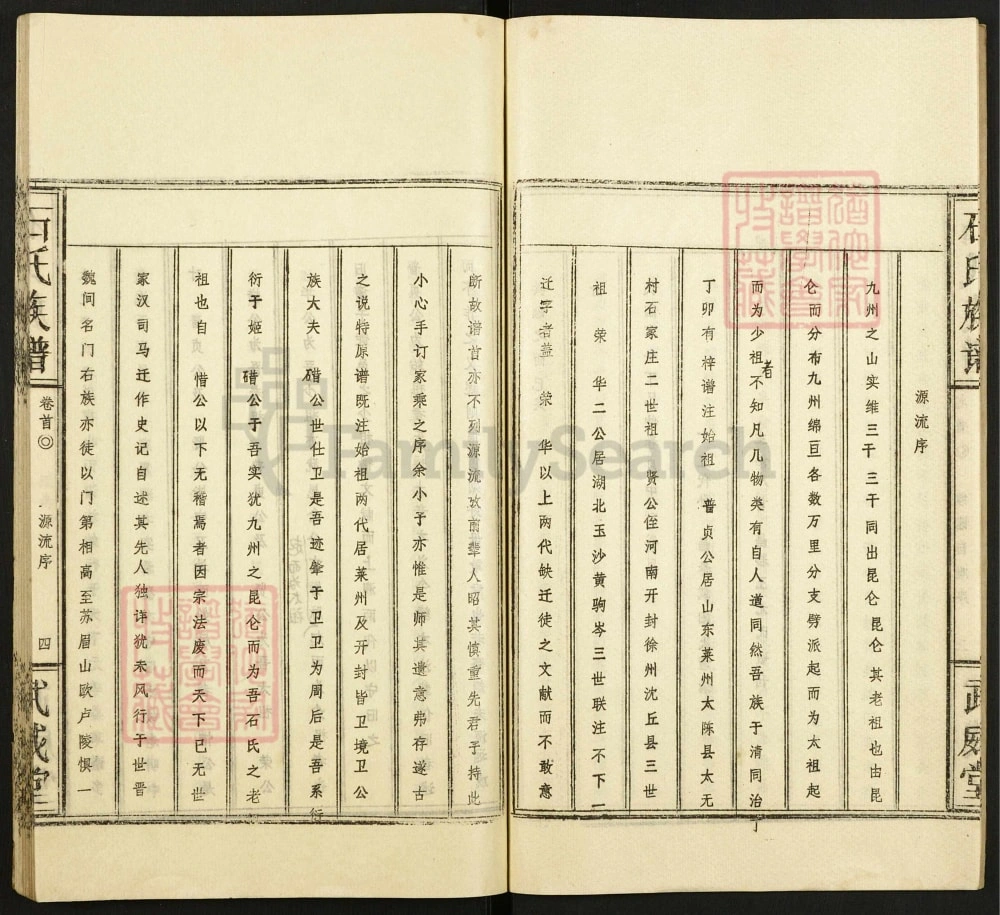 源流序
九州之山实维三干三干同出昆仑昆仑其老祖也由昆
仑而分布九州绵亘各数万里分支劈派起而为太祖起
而为少祖者不知凡几物类有自人道同然吾族于清同治
丁卯有梓谱注始祖普贞公居山东莱州太陈县太无
村石家庄二世祖贤公侄河南开封徐州沈丘县三世
祖荣华二公居湖北玉沙黄驹岑三世联注不下一
迁字者盖荣华以上两代缺迁徒之文献而不敢意
断故谱首亦不列源流故前辈人昭其慎重先君子持此
小心手订家乘之序余小子亦惟是师其遗意弗存遂古
之说特原谱既注始祖两代居莱州及开封皆卫境卫公
族大夫碏公世仕卫是吾迹肇于卫卫为周后是吾系衍
衍于姬碏公于吾实犹九州之昆仑而为吾石氏之老
祖也自惜公以下无稽焉者因宗法废而天下已无世
家汉司马迁作史记自述其先人独详犹未风行于世晋
魏间名门右族亦徒以门第相高至苏眉山欧卢陵惧一
石氏族谱
卷首
源流序
四
武威堂
石氏族谱
武威堂
FamilySearch